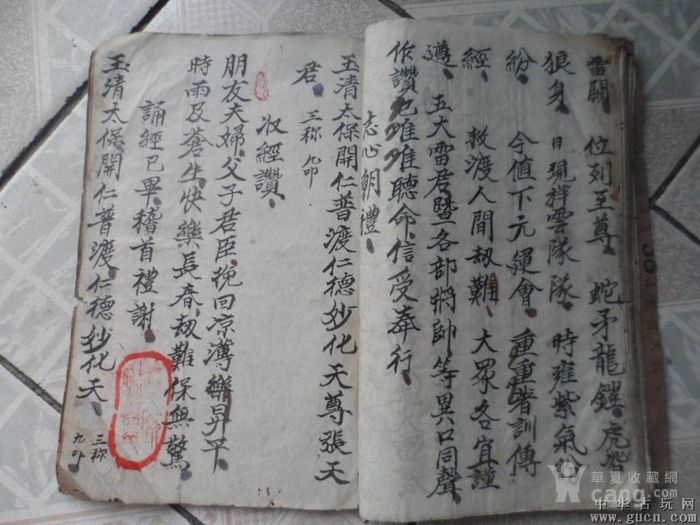 當關 位列至尊 蛇矛龍鎧、虎
狼身、日現祥雲隊隊、時雍紫氣紛
紛、今值下元運會、重重著訓傳
經、救渡人間劫難、大眾各宜謹
遵、五大雷君暨各部將帥、等異口同聲、
作讚也、唯唯聽命、信受奉行、
志心朝禮、
玉清太保開仁普渡仁德妙化天尊張天
君、三称 九叩
收經讚、
朋友夫婦、父子君臣、挽回凉薄樂昇平、
時雨及蒼生、快樂長春、劫難保無驚
誦經已畢、稽首禮謝、
玉清太保開仁普渡、仁德妙化天、
三称
九叩
華夏收藏網
cang.com
中华古玩网
www.gucn.com